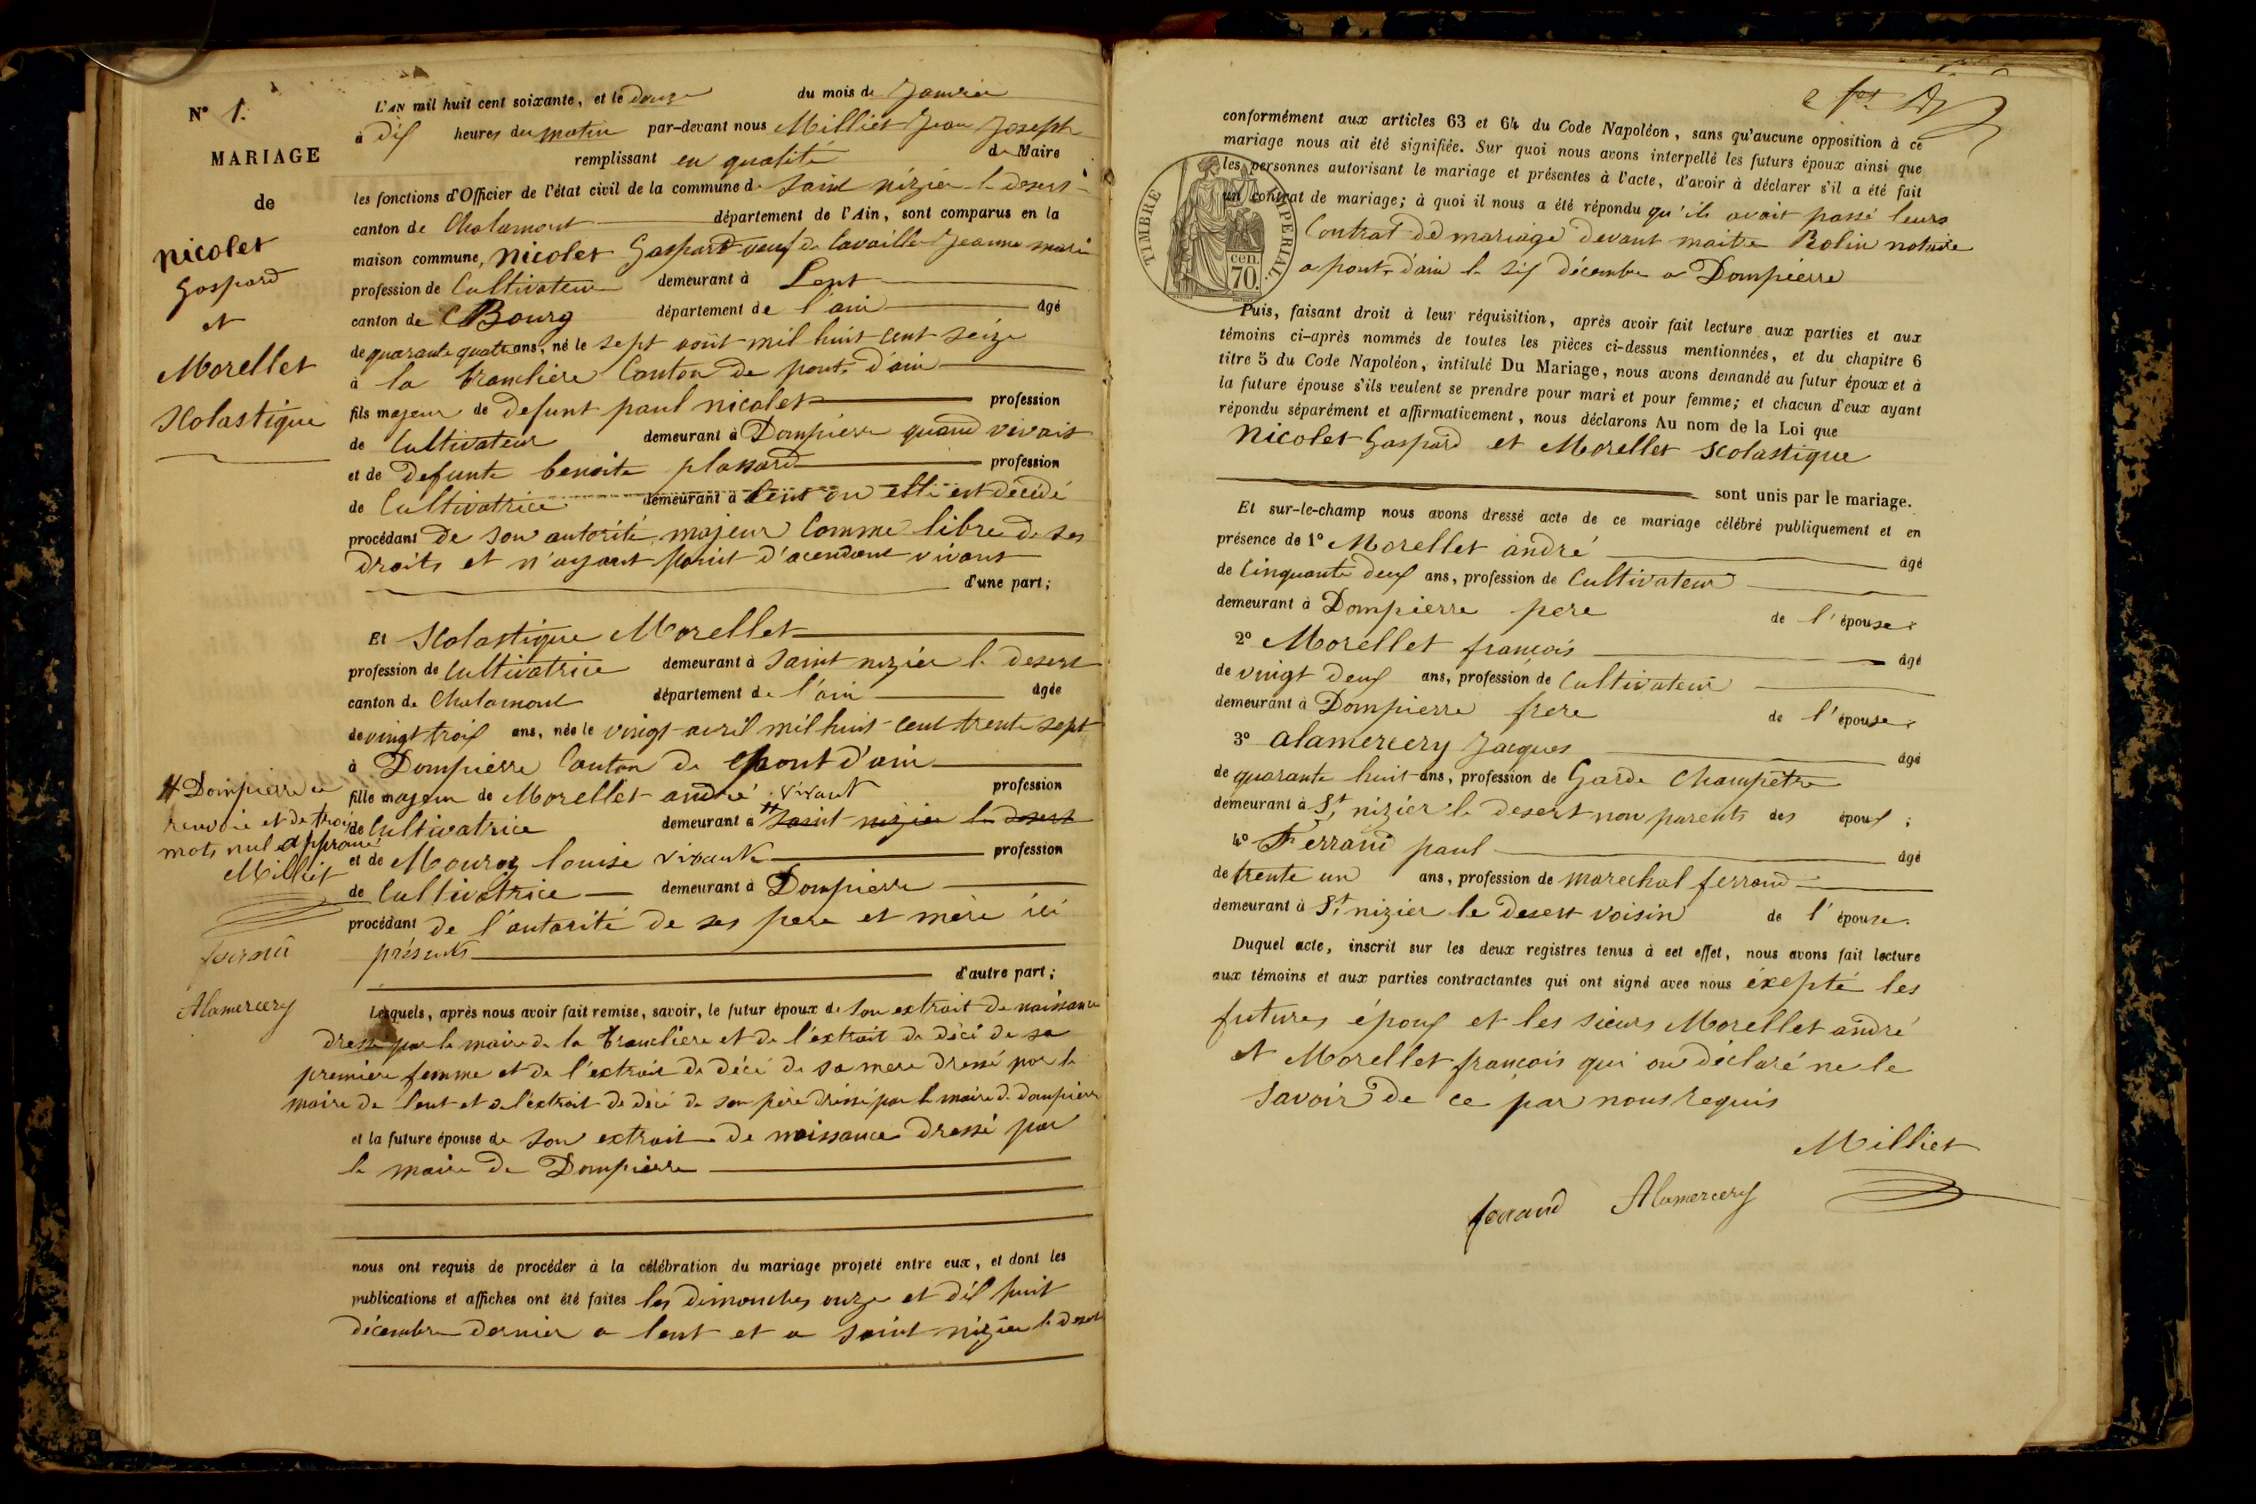 N° 1.
MARIAGE
de
Nicolet
Gaspard
et
Morellet
Scolastique
L'AN mil huit cent soixante, et le douze du mois de Janvier
à dix heures du matin par-devant nous Milliet Jean Joseph
remplissant en qualité de Maire
les fonctions d'Officier de l'état civil de la commune de Saint nizier le desert
canton de Chalamont département de l'Ain, sont comparus en la
maison commune, Nicolet Gaspard veuf de Cavaillet Jeanne marie
profession de Cultivateur demeurant à Lent
canton de Bourg département de l'ain âgé
de quarante quatre ans, né le sept août mil huit cent seize
à la tranclière Canton de pont d'ain
fils majeur de defunt paul nicolet profession
de Cultivateur demeurant à Dompierre quand vivait
et de defunte benoite plassard profession
de Cultivatrice demeurant à Lent ou elle est décédé
procédant de son autorité majeur Comme libre de ses
droits et n'ayant point d'acendant vivant
d'une part;
Et Scolastique Morellet
profession de Cultivatrice demeurant à Saint nizier le desert
canton de Chalamont département de l'ain âgée
de vingt trois ans, née le vingt avril mil huit cent trente sept
à Dompierre Canton de pont d'ain
fille majeur de Morellet andré vivant profession
de Cultivatrice demeurant à # Saint nizier le desert
et de Mouroz louise vivante profession
de Cultivatrice demeurant à Dompierre
procédant de l'autorité de ses pere et mère ici
présents
d'autre part;
# Dompierre ce
renvoie et de trois
mots nul approuvé
Milliet
ferrand
Alamercery
Lesquels, après nous avoir fait remise, savoir, le futur époux de son extrait de naissance
dressé par le maire de la tranclière et de l'extrait de déci de sa
première femme et de l'extrait de déci de sa mere dressé par le
maire de lent et de l'extrait de déci de son père dréssé par le maire de dompierre
et la future épouse de son extrait de naissance dressé par
le maire de Dompierre
nous ont requis de procéder à la célébration du mariage projeté entre eux, et dont les
publications et affiches ont été faites les dimanches onze et dix huit
décembre dernier a lent et a saint nizier le desert
conformément aux articles 63 et 64 du Code Napoléon, sans qu'aucune opposition à ce
mariage nous ait été signifiée. Sur quoi nous avons interpellé les futurs époux ainsi que
les personnes autorisant le mariage et présentes à l'acte, d'avoir à déclarer s'il a été fait
un contrat de mariage; à quoi il nous a été répondu qu'ils avait passé leurs
Contrat de mariage devant maitre Rolin notaire
a pont d'ain le six décembre a Dompierre
TIMBRE IMPERIAL.
cen.
70.
Puis, faisant droit à leur réquisition, après avoir fait lecture aux parties et aux
témoins ci-après nommés de toutes les pièces ci-dessus mentionnées, et du chapitre 6
titre 5 du Code Napoléon, intitulé Du Mariage, nous avons demandé au futur époux et à
la future épouse s'ils veulent se prendre pour mari et pour femme; et chacun d'eux ayant
répondu séparément et affirmativement, nous déclarons Au nom de la Loi que
Nicolet Gaspard et Morellet Scolastique
sont unis par le mariage.
Et sur-le-champ nous avons dressé acte de ce mariage célébré publiquement et en
présence de 1° Morellet andré âgé
de Cinquante deux ans, profession de Cultivateur
demeurant à Dompierre pere de l'épouse;
2° Morellet françois âgé
de vingt deux ans, profession de Cultivateur
demeurant à Dompierre frere de l'épouse;
3° alamercery Jacques âgé
de quarante huit ans, profession de Garde Champetre
demeurant à St nizier le desert non parents des époux;
4° Ferrand paul âgé
de trente un ans, profession de marechal ferrand
demeurant à St nizier le desert voisin de l'épouse.
Duquel acte, inscrit sur les deux registres tenus à cet effet, nous avons fait lecture
aux témoins et aux parties contractantes qui ont signé avec nous éxepté les
futures époux et les sieurs Morellet andré
et Morellet françois qui on déclaré ne le
savoir de ce par nous requis
Milliet
ferrand Alamercery